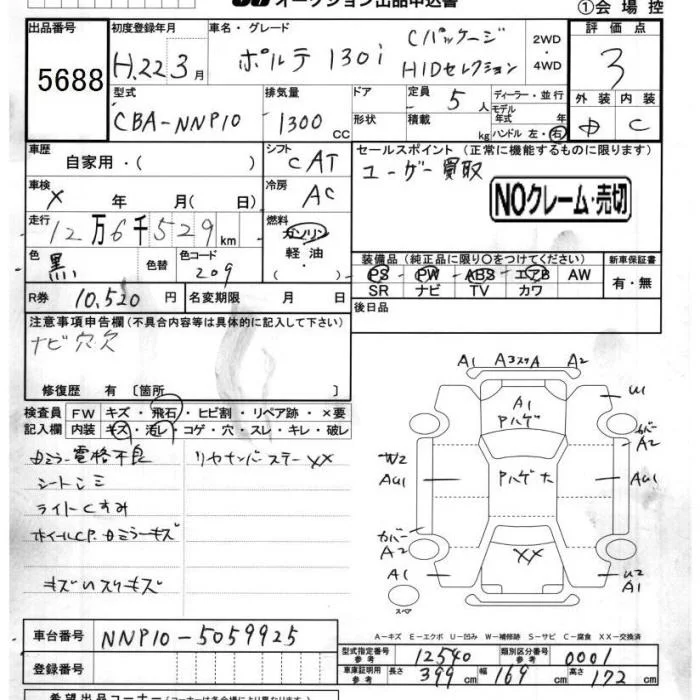 オークション出品申込書
①会場控
出品番号
5688
初度登録年月
H.22 3月
車名・グレード
ポルテ 130i
Cパッケージ
HIDセレクション
2WD
・
4WD
評価点
3
外装 内装
C
型式
CBA-NNP10
排気量
1300 CC
ドア
形状
定員 5人
積載 kg
ディーラー・並行
モデル
年式 年
ハンドル 左・右
車歴
自家用・( )
シフト
CAT
セールスポイント (正常に機能するものに限ります)
ユーザー買取
NOクレーム・売切
車検
X 年 月( 日)
冷房
AC
走行
12万6千529km
燃料
ガソリン
軽油
・( )
色
黒
色替
色コード
209
装備品 (純正品に限り○をつけてください)
PS PW ABS エアB AW
SR ナビ TV カワ
新車保証書
有・無
R券 10,520円
名変期限 月 日
後日品
注意事項申告欄 (不具合内容等は具体的に記入して下さい)
ナビ穴欠
修復歴 有 〔箇所 〕
検査員
記入欄
FW キズ・飛石・ヒビ割・リペア跡・×要
内装 キズ・汚レ・コゲ・穴・スレ・キレ・破レ
ミラー電格不良
シートシミ
ライトくすみ
ホイールCP.
キズ
リヤナンバーステーXX
A1 A3ススA A2
U1
A1
Pハゲ
カバー
A2
W2
AU1
Pハゲ大
AU1
カバー
A2
XX
A1
U2
A1
スペア
A－キズ E－エクボ U－凹み W－補修跡 S－サビ C－腐食 XX－交換済
車台番号
NNP10-5059925
登録番号
型式指定番号
参考
12540
類別区分番号
参考
0001
車庫証明用
参考
長さ 399cm 幅 169cm 高さ 172cm
希望出品コーナー (コーナーは各会場により異なります)